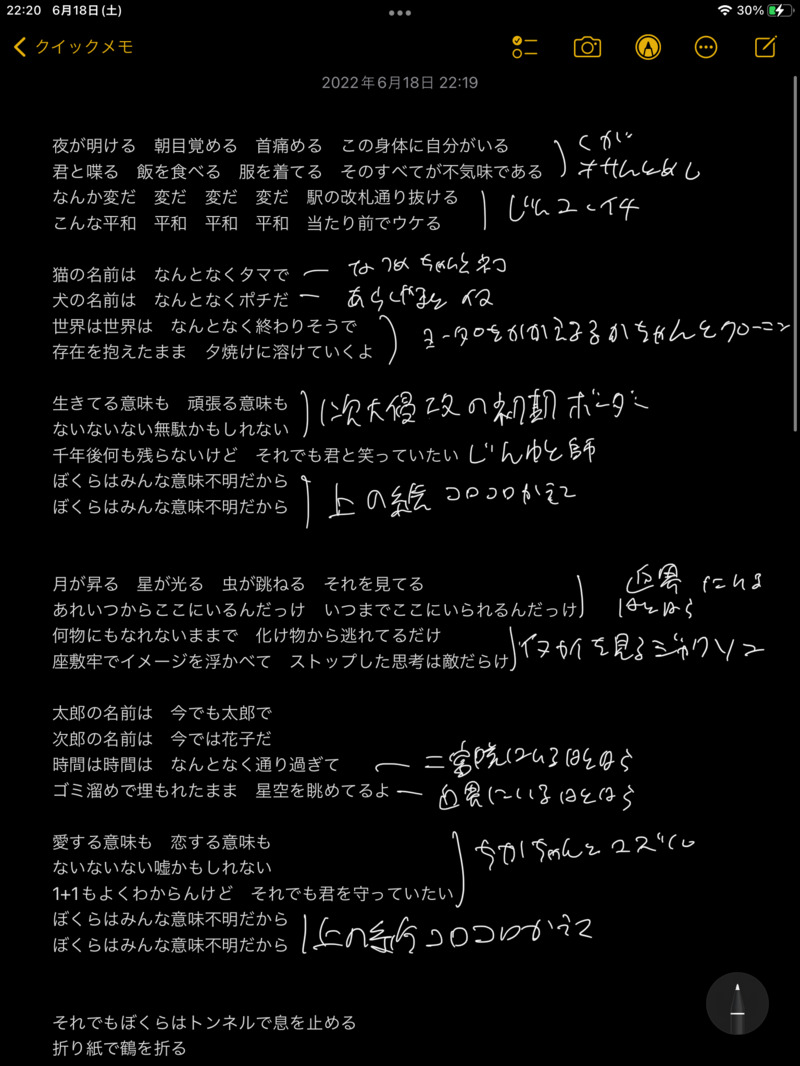 22:20 6月18日(土)
30%
クイックメモ
2022年6月18日 22:19
夜が明ける 朝目覚める 首痛める この身体に自分がいる
くが
君と喋る 飯を食べる 服を着てる そのすべてが不気味である
なんか変だ 変だ 変だ 変だ 駅の改札通り抜ける
じんユーイチ
こんな平和 平和 平和 平和 当たり前でウケる
猫の名前は なんとなくタマで
なつめちゃんとネコ
犬の名前は なんとなくポチだ
世界は世界は なんとなく終わりそうで
存在を抱えたまま 夕焼けに溶けていくよ
生きてる意味も 頑張る意味も
ないないない無駄かもしれない
1次大侵攻の初期ボーダー
千年後何も残らないけど それでも君と笑っていたい
じんゆと師
ぼくらはみんな意味不明だから
上の絵 コロコロかえて
ぼくらはみんな意味不明だから
月が昇る 星が光る 虫が跳ねる それを見てる
あれいつからここにいるんだっけ いつまでここにいられるんだっけ
何物にもなれないままで 化け物から逃れてるだけ
座敷牢でイメージを浮かべて ストップした思考は敵だらけ
太郎の名前は 今でも太郎で
次郎の名前は 今では花子だ
時間は時間は なんとなく通り過ぎて
ゴミ溜めで埋もれたまま 星空を眺めてるよ
愛する意味も 恋する意味も
ちかちゃんとユズル
ないないない嘘かもしれない
1+1もよくわからんけど それでも君を守っていたい
ぼくらはみんな意味不明だから
上の絵 コロコロかえて
ぼくらはみんな意味不明だから
それでもぼくらはトンネルで息を止める
折り紙で鶴を折る